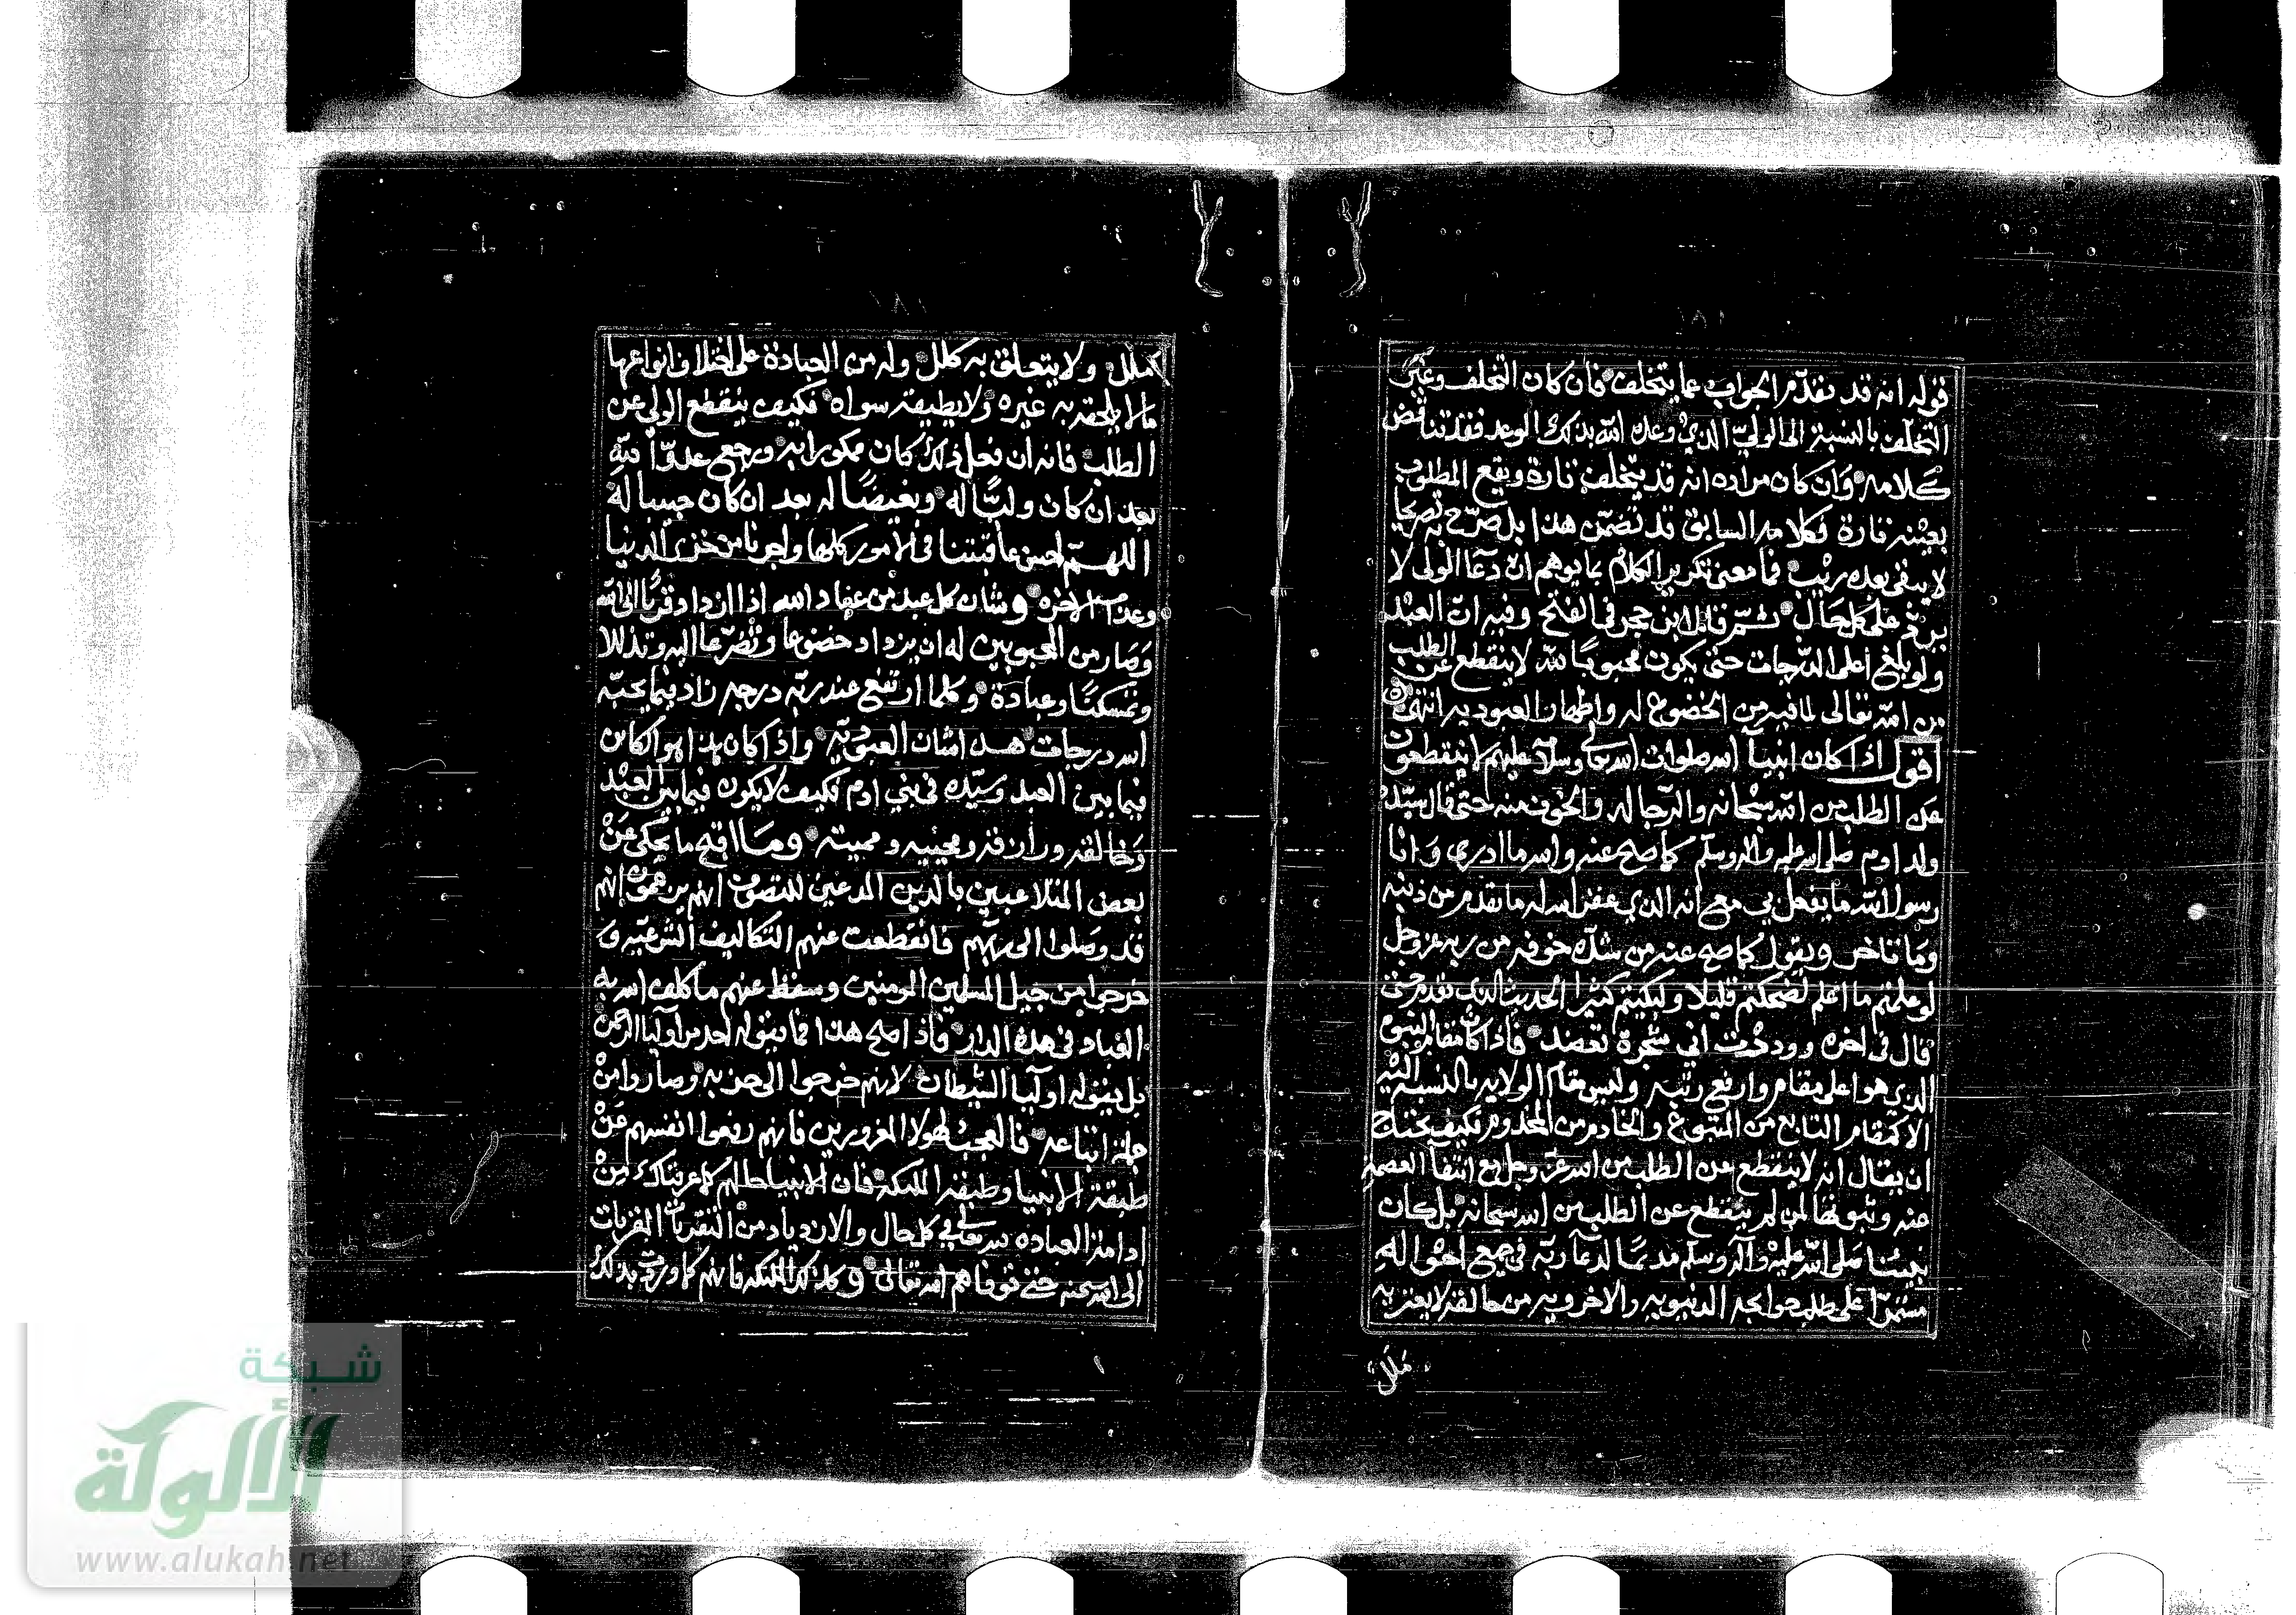 قوله انه قد تقدم الجواب عما يتخلف فان كان التخلف وعين
التخلف بالنسبة الى الولي الذي وعده الله بذلك الوعد فقد تناقض
كلامه وان كان مراده انه قد يتخلف تارة ويقع المطلوب
بعينه تارة فكلامه السابق قد تضمن هذا بل صرح به تصريحا
لا يبقى بعده ريب فما معنى تكرير الكلام بما يوهم ان دعا الولي لا
يرد على كل حال ثم قال ابن حجر في الفتح وفيه ان العبد
ولو بلغ اعلى الدرجات حتى يكون محبوبا لله لا ينقطع عن الطلب
من الله تعالى لما فيه من الخضوع له واظهار العبودية انتهى
اقول اذا كان انبيآ الله صلوات الله تعالى وسلامه عليهم لا ينقطعون
عن الطلب من الله سبحانه والرجا له والخوف منه حتى قال سيد
ولد ادم صلى الله عليه واله وسلم كما صح عنه والله ما ادري وانا
رسول الله ما يفعل بي مع انه الذي غفر الله له ما تقدم من ذنبه
وما تاخر ويقول كما صح عنه من شدة خوفه من ربه عز وجل
لو علمتم ما اعلم لضحكتم قليلا ولبكيتم كثيرا الحديث الذي تقدم حتى
قال في اخره ووددت اني شجرة تعضد فاذا كان مقام النبوة
الذي هو اعلى مقام وارفع رتبة وليس مقام الولاية بالنسبة اليه
الا كمقام التابع من المتبوع والخادم من المخدوم فكيف يحتاج
ان يقال انه لا ينقطع عن الطلب من الله عز وجل مع انتفآ العصمة
عنه وثبوتها لمن لم ينقطع عن الطلب من الله سبحانه بل كان
نبينا صلى الله عليه وآله وسلم مديما لدعآ ربه في جميع احواله
مستمرا على طلب حوائجه الدنيوية والاخروية من خالقه لا يعتريه
ملل
ملل ولا يتعلق به كلل وله من العبادة على اختلاف انواعها
ما لا يلحقه به غيره ولا يطيقه سواه فكيف ينقطع الولي عن
الطلب فانه ان فعل ذلك كان ممكورا به ورجع عدوا لله
بعد ان كان وليا له وبغيضا له بعد ان كان حبيبا له
اللهم احسن عاقبتنا في الامور كلها واجرنا من خزي الدنيا
وعذاب الاخرة وشان كل عبد من عباد الله اذا ازداد قربا الى الله
وصار من المحبوبين له ان يزداد خضوعا وتضرعا اليه وتذللا
وتمسكنا وعبادة وكلما ارتفع عند ربه درجه زاد فيما يحبه
الله درجات هذا شان العبودية واذا كان هذا هو الكائن
فيما بين العبد وسيده في بني ادم فكيف لا يكون فيما بين العبد
وخالقه ورازقه ومحييه ومميته وما اقبح ما يحكى عن
بعض المتلاعبين بالدين المدعين للتصوف انهم يزعمون انهم
قد وصلوا الى ربهم فانقطعت عنهم التكاليف الشرعية و
خرجوا من جيل المسلمين المومنين وسقط عنهم ما كلف الله به
العباد في هذه الدار فاذا صح هذا فما يقوله احد من اوليا الرحمن
بل يقوله اوليا الشيطان لانهم خرجوا الى حزبه وصاروا من
جملة اتباعه فالعجب لهولا المغرورين فانهم رفعوا انفسهم عن
طبقة الانبيا وطبقة الملئكة فان الانبيا حالهم كما عرفناك من
ادامة العبادة لله تعالى في كل حال والازدياد من التقربات المقربات
الى الله سبحنه حتى توفاهم الله تعالى وكذلك الملئكة فانهم كما وردت بذلك